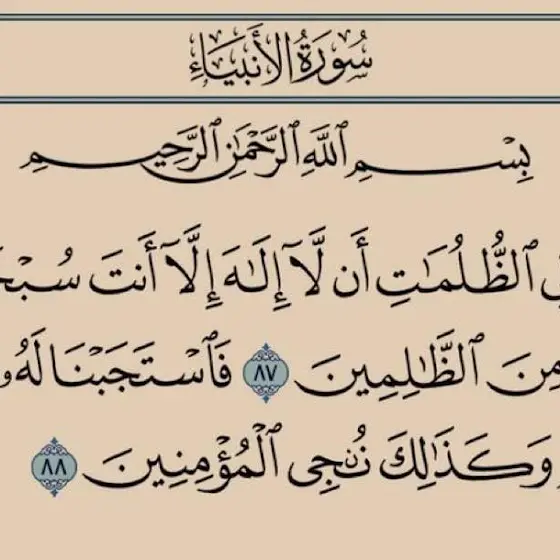 سُورَةُ الأَنبِيَاءِ
بِسْمِ ٱللَّهِ ٱلرَّحْمَٰنِ ٱلرَّحِيمِ
ٱلظُّلُمَٰتِ أَن لَّآ إِلَٰهَ إِلَّآ أَنتَ
ٱلظَّٰلِمِينَ ٨٧ فَٱسْتَجَبْنَا لَهُۥ
وَكَذَٰلِكَ نُۨجِى ٱلْمُؤْمِنِينَ ٨٨